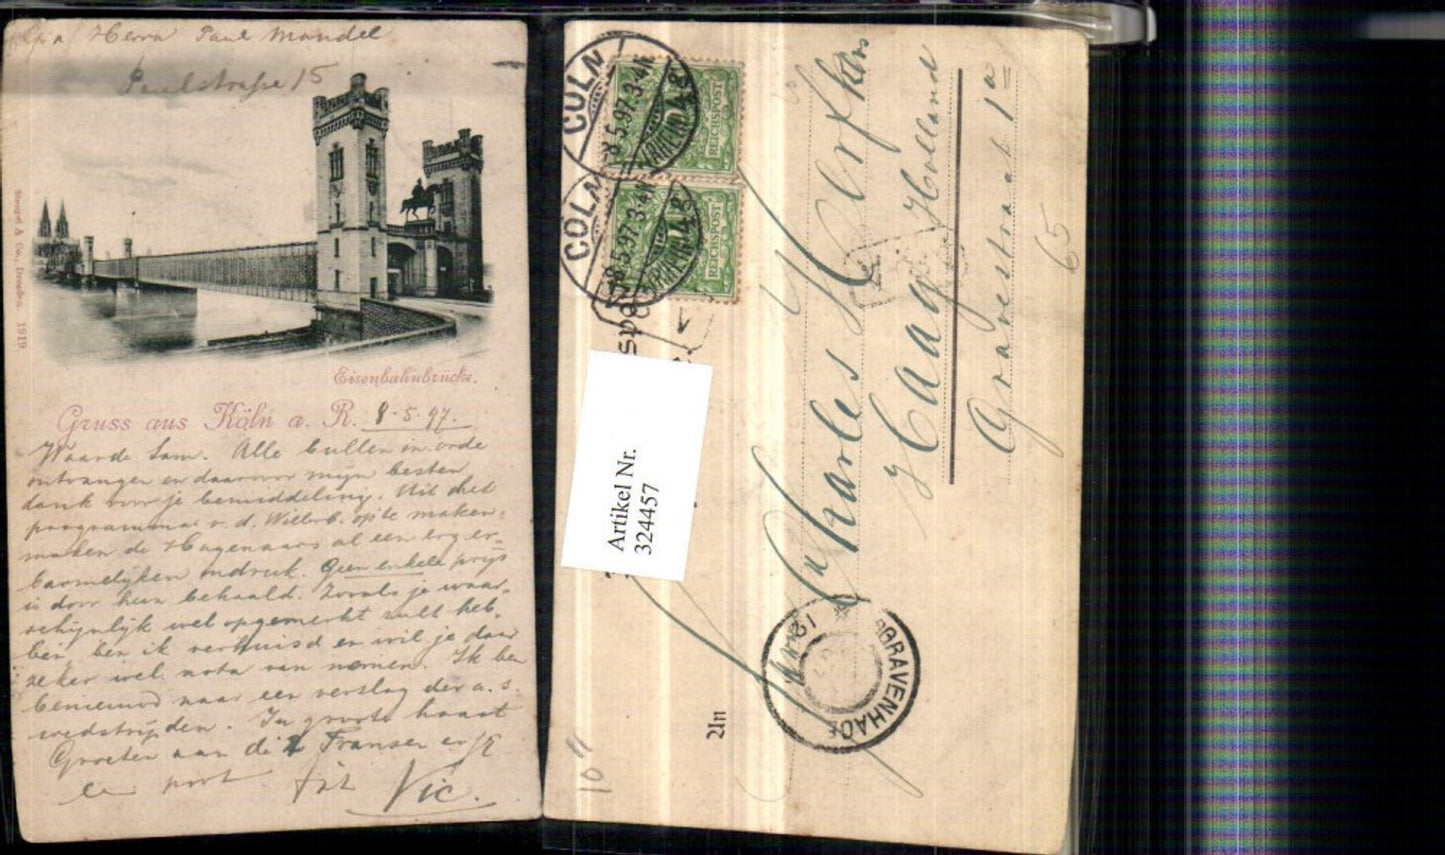 Herrn Paul Mandel
Paulstrasse 15
Stengel & Co., Dresden. 1919
Eisenbahnbrücke.
Gruss aus Köln a. R. 8-5-97.
Waarde Sam. Alle bullen in orde
ontvangen en daarvoor mijn besten
dank voor je bemiddeling. Uit het
programma v. d. op te maken,
maken de Hagenaars al een erg er-
barmelijken indruk. Geen enkele prijs
is door hen behaald. Zooals je waar-
schijnlijk wel opgemerkt zult heb-
ben, ben ik verhuisd en wil je daar
zeker wel nota van nemen. Ik ben
benieuwd naar een verslag der a. s.
wedstrijden. In groote haast
Groeten aan de Fransen en
Vic.
CÖLN
8.5.97.3-4N
REICHSPOST
CÖLN
8.5.97.3-4N
REICHSPOST
Artikel Nr.
324457
An
Charles
Haag Holland
65
10
GRAVENHAGE
12